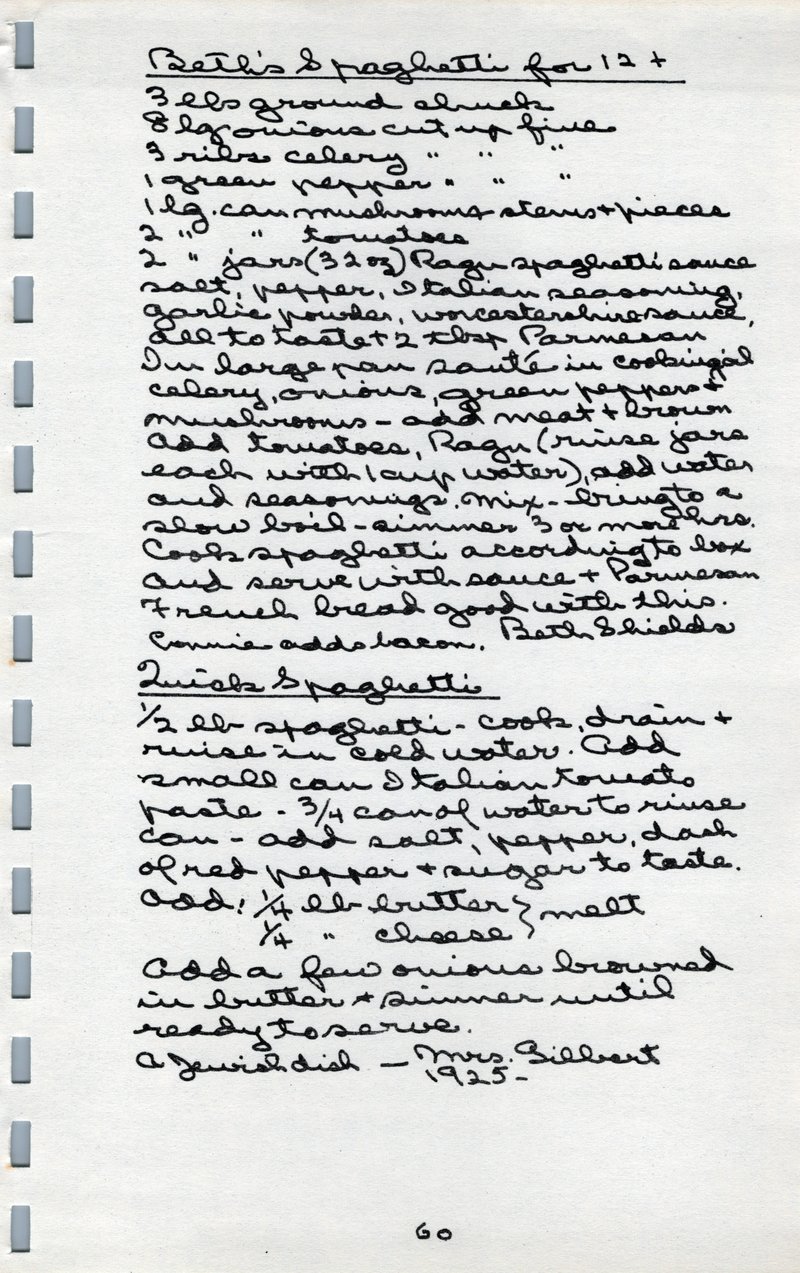 Beth's Spaghetti for 12 +
3 lbs ground chuck
8 lg onions cut up fine
3 ribs celery " " "
1 green pepper " " "
1 lg. can mushrooms stems + pieces
2 " " tomatoes
2 " jars (32 oz) Ragu spaghetti sauce
salt, pepper, Italian seasoning,
garlic powder, worcestershire sauce,
all to taste + 2 tbsp Parmesan
In large pan sauté in cooking oil
celery, onions, green peppers +
mushrooms - add meat + brown
Add tomatoes, Ragu (rinse jars
each with 1 cup water), add water
and seasonings. Mix - bring to a
slow boil - simmer 3 or more hrs.
Cook spaghetti according to box
and serve with sauce + Parmesan
French bread good with this.
Connie adds bacon. Beth Shields
Quick Spaghetti
1/2 lb spaghetti - cook, drain +
rinse in cold water. Add
small can Italian tomato
paste - 3/4 can of water to rinse
can - add salt, pepper, dash
of red pepper + sugar to taste.
Add: 1/4 lb butter } melt
1/4 " cheese
Add a few onions browned
in butter + simmer until
ready to serve.
A Jewish dish - Mrs. Gilbert
1925 -
60